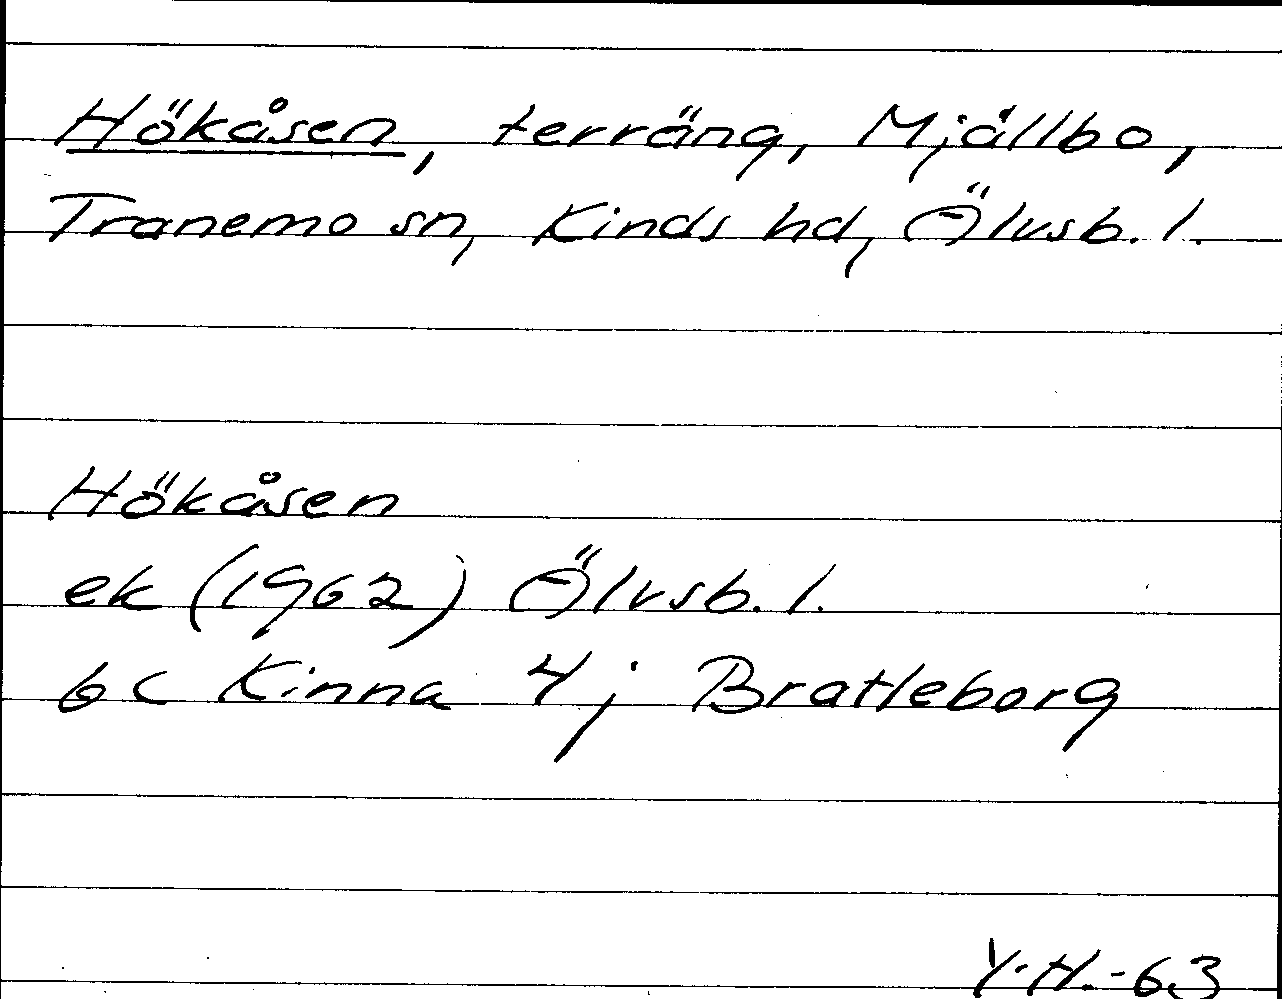 Hökåsen, terräng, Mjällbo,
Tranemo sn, Kinds hd, Älvsb. l.
Hökåsen
ek (1962) Älvsb. l.
6c Kinna 4j Brattleborg
Y.H.-63